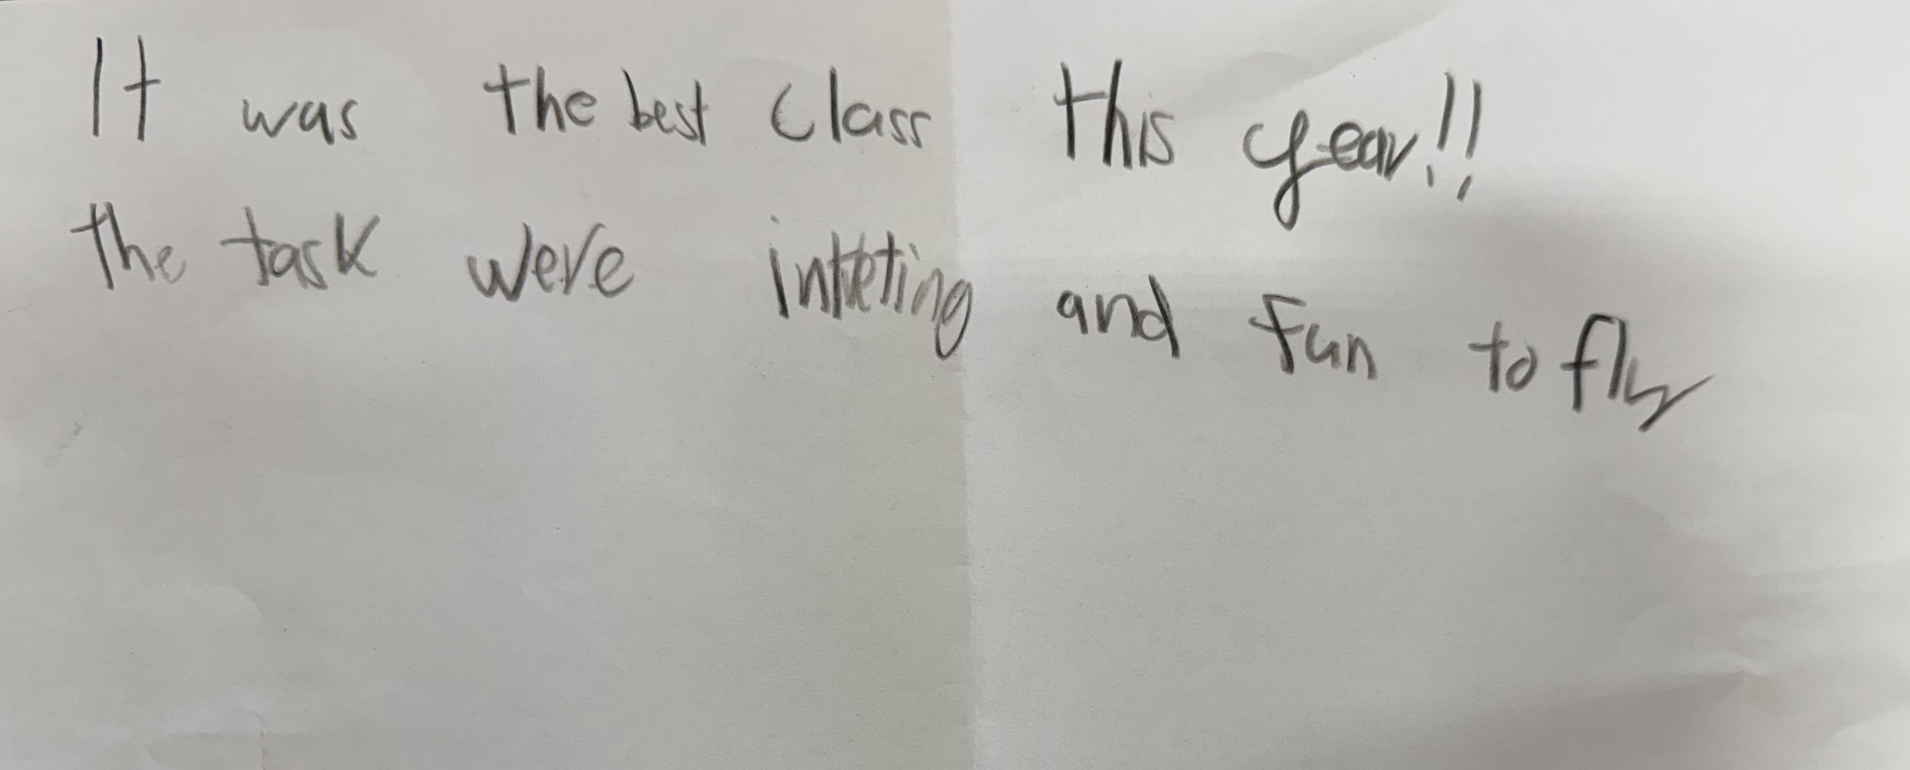 It was the best class this year!!
the task were inteting and fun to fly